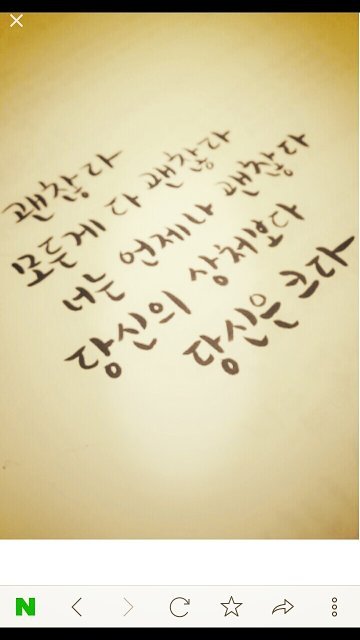 괜찮다
모든게 다 괜찮다
너는 언제나 괜찮다
당신의 상처보다
당신은 크다
N